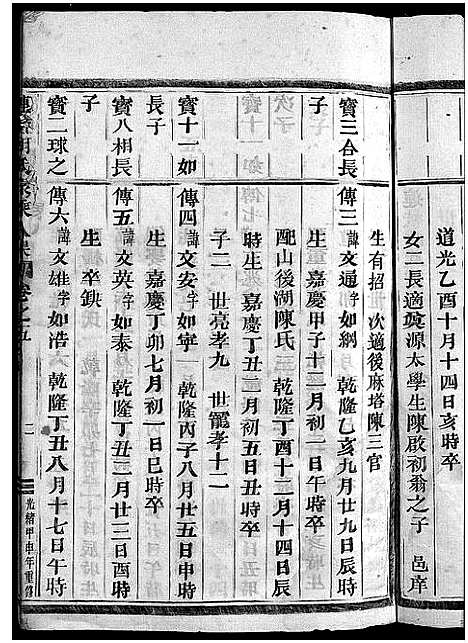 道光乙酉十月十四日亥時卒
女二長適婺源太學生陳啟初翁之子 邑庠
生有招 次適後麻塔陳三官
寶三合長 傳三 諱文通字如綱 乾隆乙亥九月廿九日辰
子 時生 嘉慶甲子十二月初一日午時卒
配山後湖陳氏 乾隆丁酉十二月十四日辰
時生 嘉慶丁丑二月初五日丑時卒
子二 世亮孝九 世寵孝十二
寶十一如 傳四 諱文安字如寧 乾隆丙子八月廿五日申時
長子 生 嘉慶丁卯七月初一日巳時卒
寶八相長 傳五 諱文英字如泰 乾隆丁丑二月廿三日酉時
子 生 卒缺
寶二球之 傳六 諱文雄字如浩 乾隆丁丑八月十七日午時
卷之五
二
光緒甲申年重修